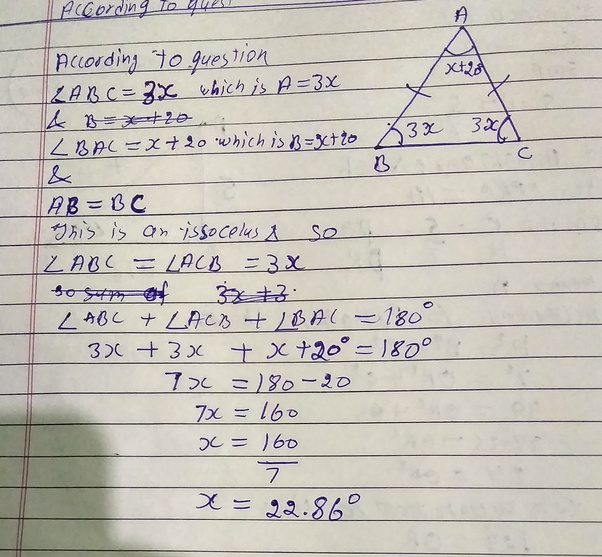 According to quest
According to question
∠ABC = 3x which is A = 3x
& B = x+20
∠BAC = x+20 which is B = x+20
&
AB = BC
This is an issocelus & so
∠ABC = ∠ACB = 3x
so sum of 3x + 3.
∠ABC + ∠ACB + ∠BAC = 180°
3x + 3x + x+20° = 180°
7x = 180-20
7x = 160
x = 160
7
x = 22.86°
A
x+20
3x 3x
B C